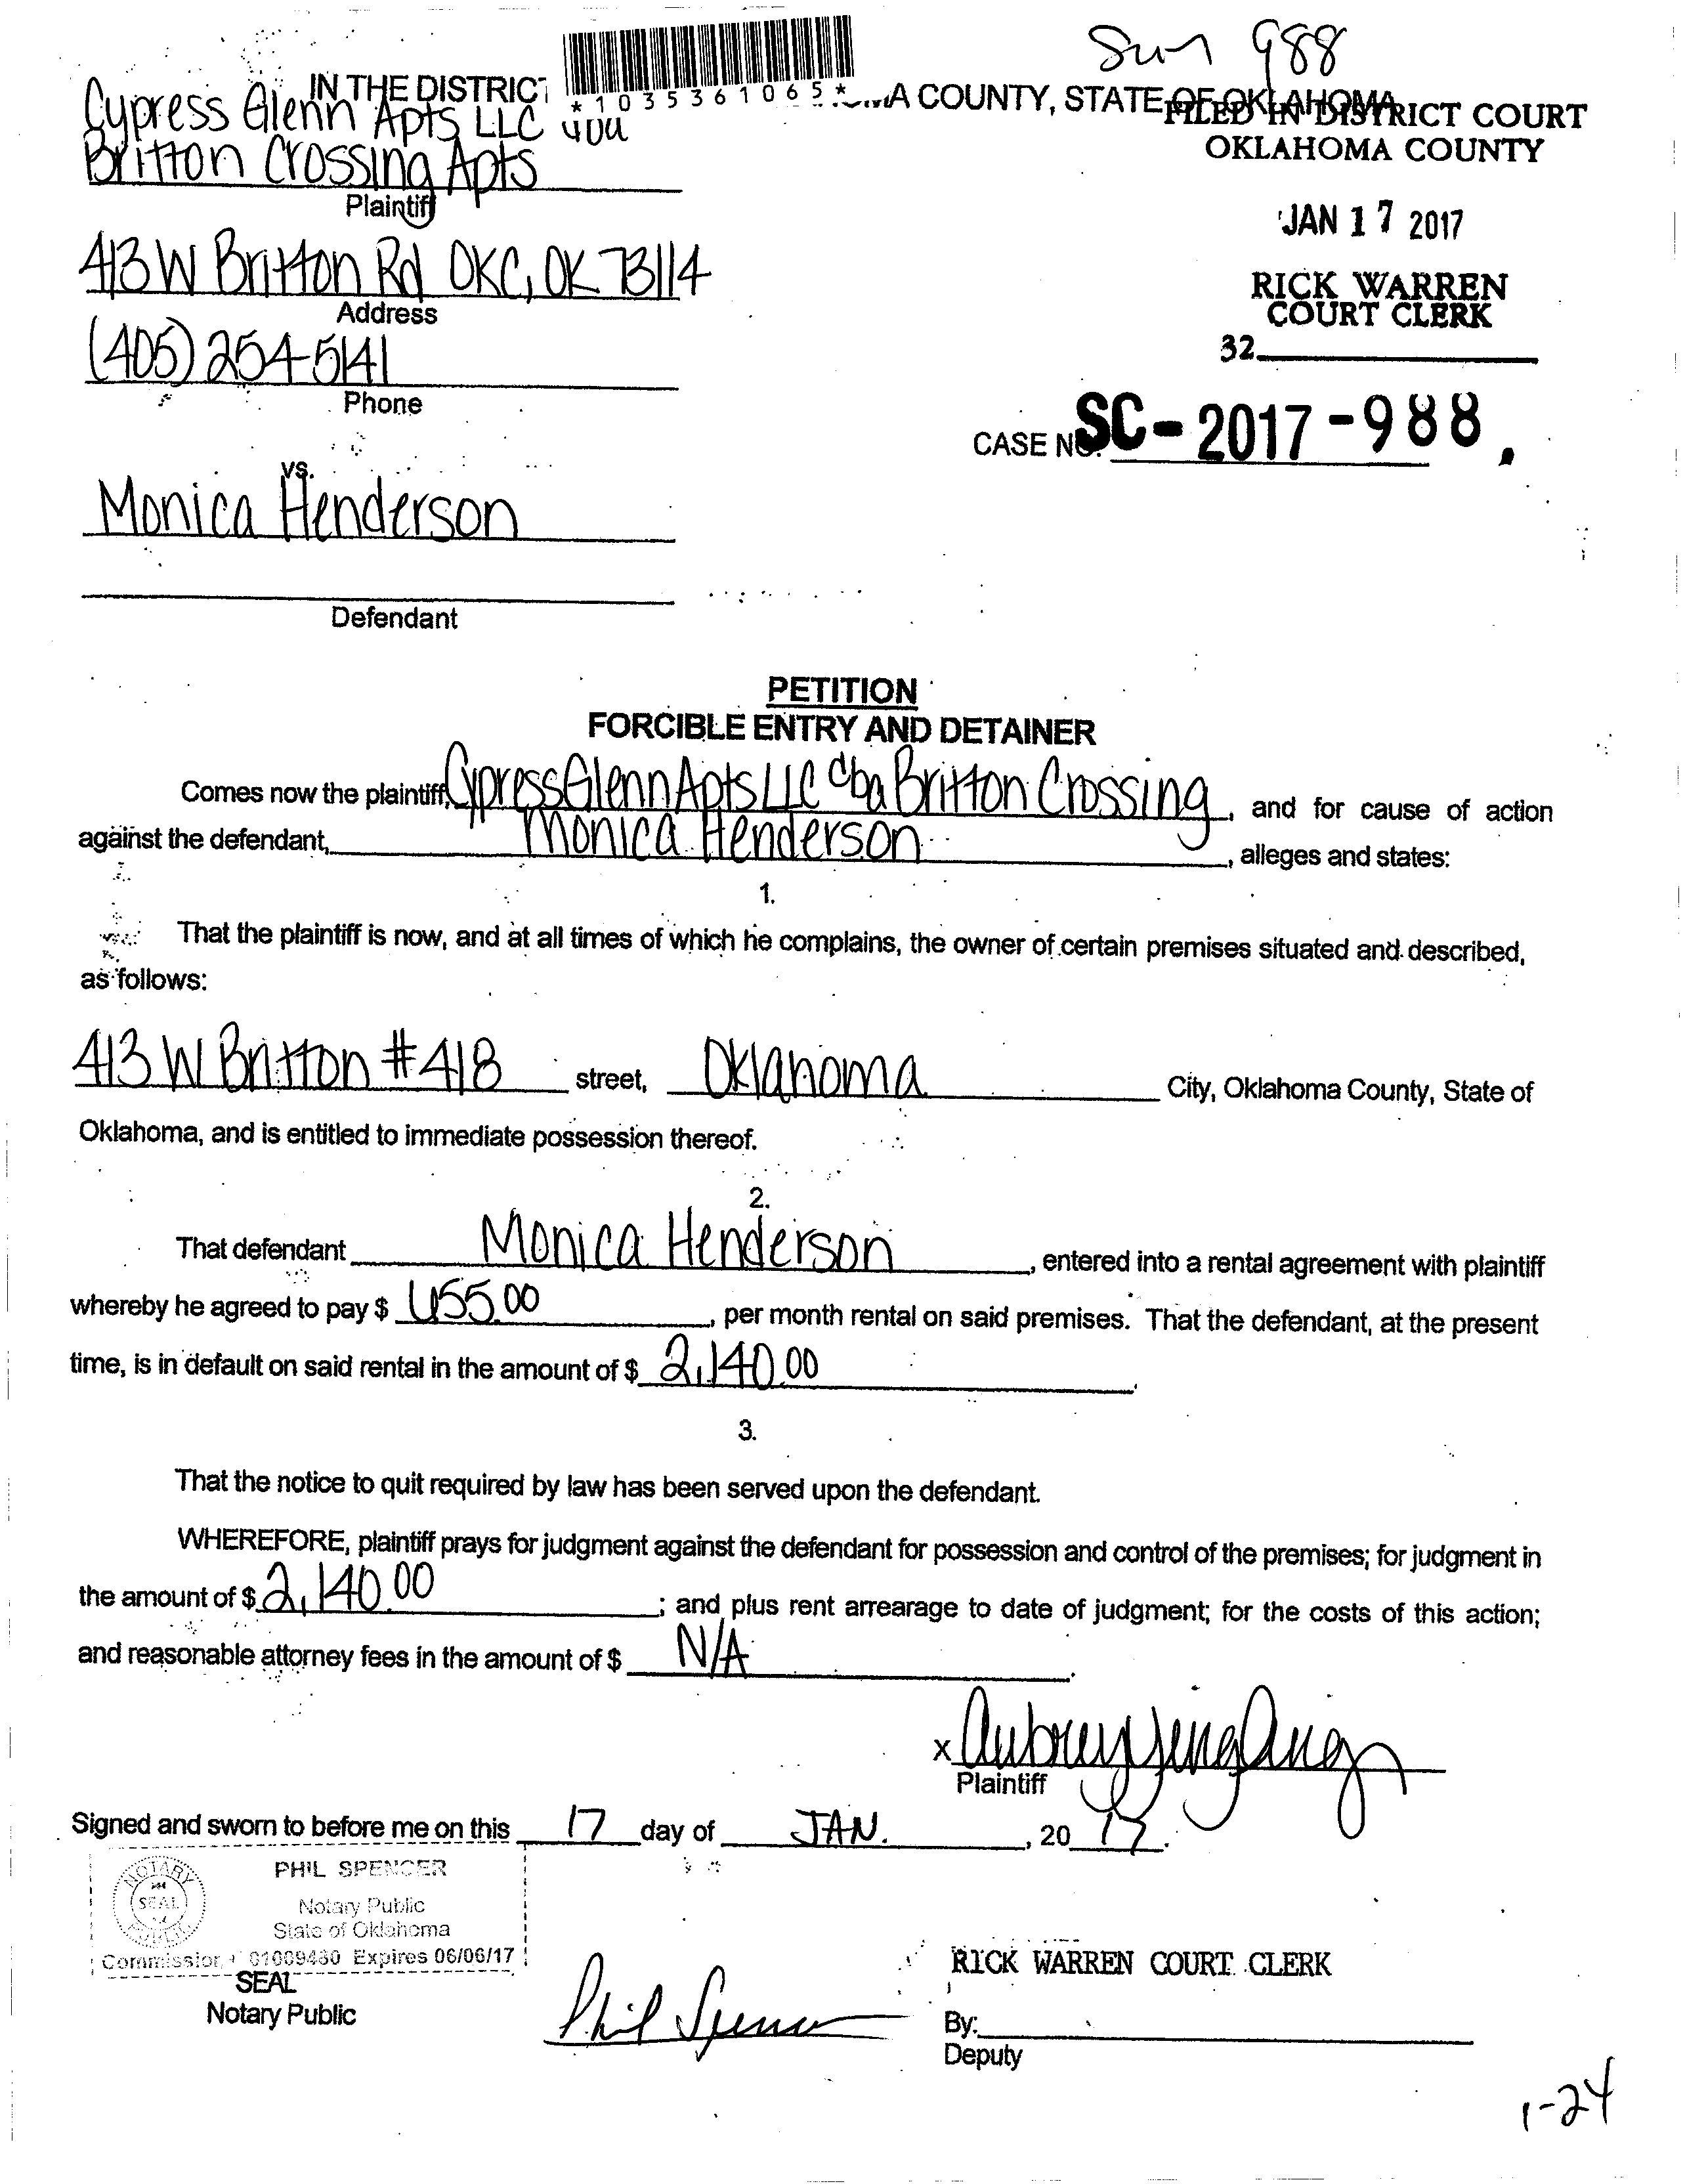 Sun 988
IN THE DISTRICT *1035361065* A COUNTY, STATE OF OKLAHOMA
FILED IN DISTRICT COURT
OKLAHOMA COUNTY
JAN 17 2017
RICK WARREN
COURT CLERK
32
Cypress Glenn Apts LLC
Britton Crossing Apts
Plaintiff
413 W Britton Rd OKC, OK 73114
Address
(405) 254-5141
Phone
CASE NO. SC-2017-988
vs.
Monica Henderson
Defendant
PETITION
FORCIBLE ENTRY AND DETAINER
Comes now the plaintiff, Cypress Glenn Apts LLC dba Britton Crossing, and for cause of action
against the defendant, Monica Henderson, alleges and states:
1.
That the plaintiff is now, and at all times of which he complains, the owner of certain premises situated and described,
as follows:
413 W Britton #418 street, Oklahoma City, Oklahoma County, State of
Oklahoma, and is entitled to immediate possession thereof.
2.
That defendant Monica Henderson, entered into a rental agreement with plaintiff
whereby he agreed to pay $ 655.00, per month rental on said premises. That the defendant, at the present
time, is in default on said rental in the amount of $ 2,140.00.
3.
That the notice to quit required by law has been served upon the defendant.
WHEREFORE, plaintiff prays for judgment against the defendant for possession and control of the premises; for judgment in
the amount of $ 2,140.00; and plus rent arrearage to date of judgment; for the costs of this action;
and reasonable attorney fees in the amount of $ N/A.
X Aubrey
Plaintiff
Signed and sworn to before me on this 17 day of JAN., 20 17.
NOTARY
SEAL
PUBLIC
PHIL SPENCER
Notary Public
State of Oklahoma
Commission # 01009480 Expires 06/06/17
SEAL
Notary Public
Phil Spencer
RICK WARREN COURT CLERK
By:
Deputy
1-24